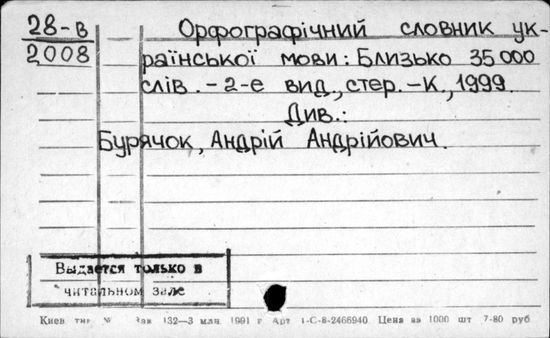 28-в
2008
Орфографічний словник ук-
раїнської мови: Близько 35 000
слів. - 2-е вид., стер. - К., 1999.
Див.:
Бурячок, Андрій Андрійович.
Выдается только в
читальном зале
Киев 132—3 млн. 1991 г. Арт 1-С-8-2466940. Цена за 1000 шт 7-80 руб